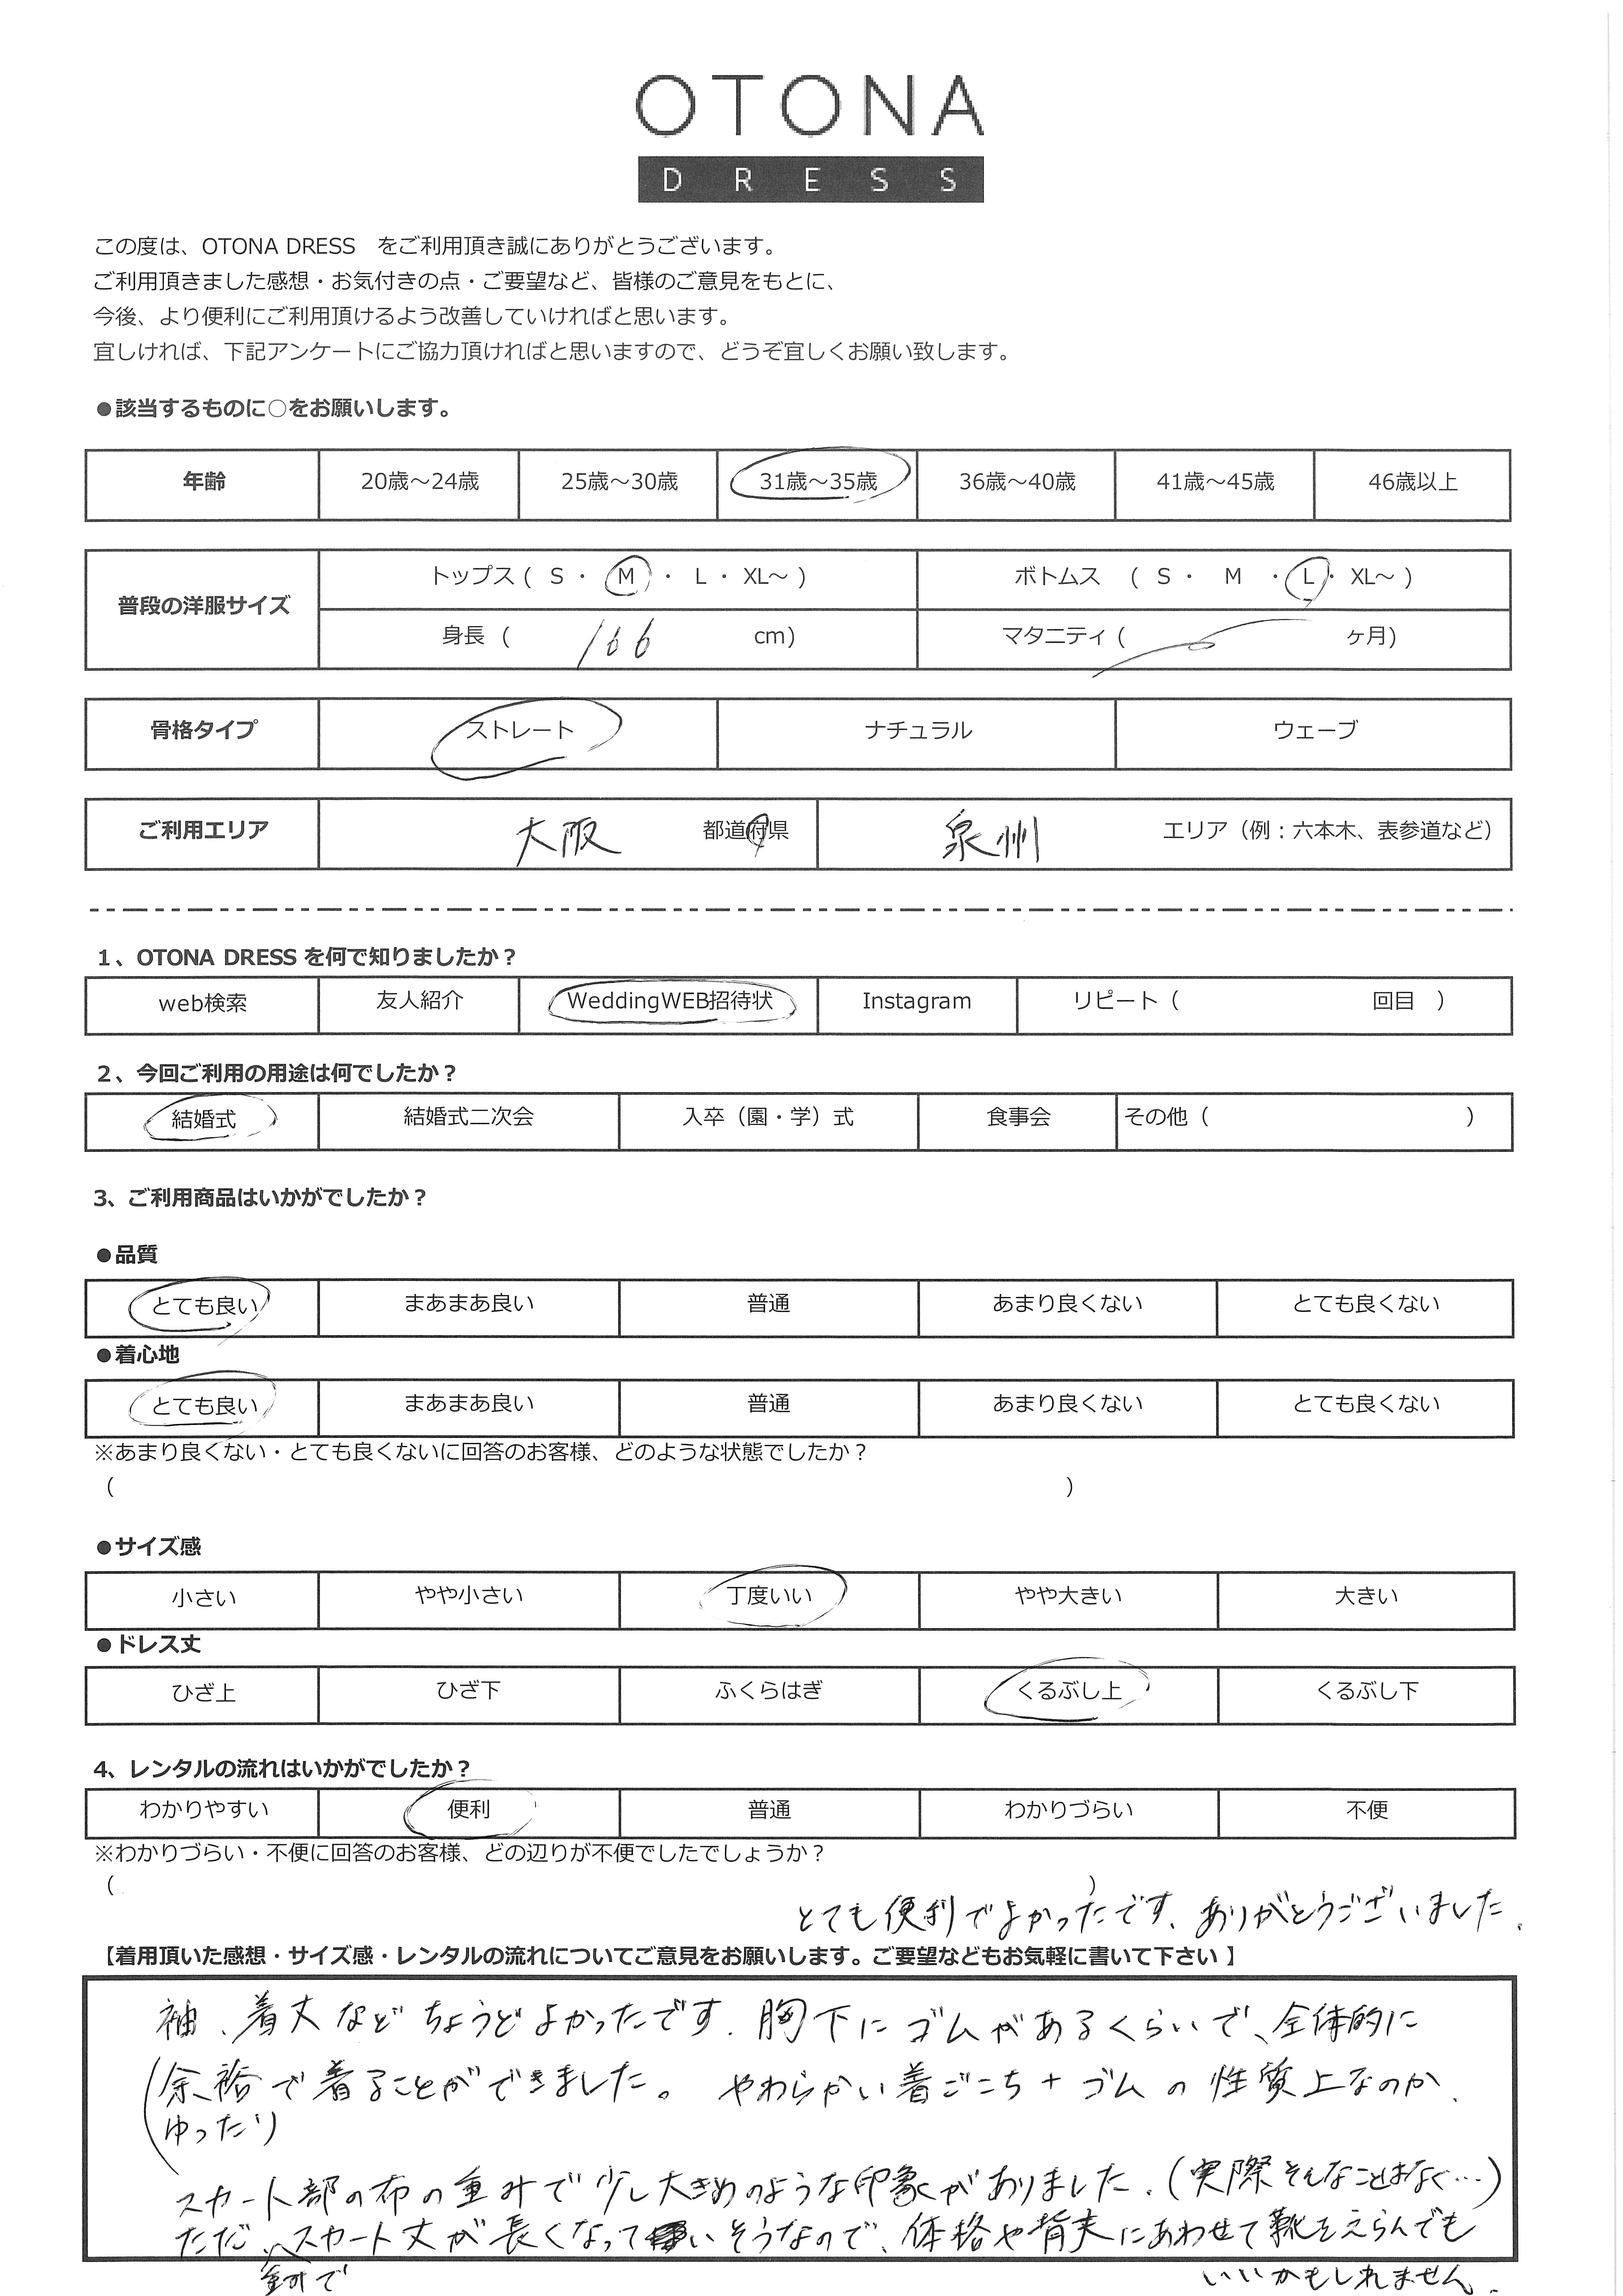 OTONA
DRESS
この度は、OTONA DRESS　をご利用頂き誠にありがとうございます。
ご利用頂きました感想・お気付きの点・ご要望など、皆様のご意見をもとに、
今後、より便利にご利用頂けるよう改善していければと思います。
宜しければ、下記アンケートにご協力頂ければと思いますので、どうぞ宜しくお願い致します。
●該当するものに○をお願いします。
年齢 20歳～24歳 25歳～30歳 31歳～35歳 36歳～40歳 41歳～45歳 46歳以上
普段の洋服サイズ トップス ( S ・ M ・ L ・ XL～ ) ボトムス ( S ・ M ・ L ・ XL～ )
身長 ( 166 cm) マタニティ ( ヶ月)
骨格タイプ ストレート ナチュラル ウェーブ
ご利用エリア 大阪 都道府県 泉州 エリア（例：六本木、表参道など）
1、OTONA DRESS を何で知りましたか？
web検索 友人紹介 WeddingWEB招待状 Instagram リピート（ 回目 ）
2、今回ご利用の用途は何でしたか？
結婚式 結婚式二次会 入卒（園・学）式 食事会 その他（ ）
3、ご利用商品はいかがでしたか？
●品質
とても良い まあまあ良い 普通 あまり良くない とても良くない
●着心地
とても良い まあまあ良い 普通 あまり良くない とても良くない
※あまり良くない・とても良くないに回答のお客様、どのような状態でしたか？
（ ）
●サイズ感
小さい やや小さい 丁度いい やや大きい 大きい
●ドレス丈
ひざ上 ひざ下 ふくらはぎ くるぶし上 くるぶし下
4、レンタルの流れはいかがでしたか？
わかりやすい 便利 普通 わかりづらい 不便
※わかりづらい・不便に回答のお客様、どの辺りが不便でしたでしょうか？
（ ）
とても便利でよかったです、ありがとうございました。
【着用頂いた感想・サイズ感・レンタルの流れについてご意見をお願いします。ご要望などもお気軽に書いて下さい 】
袖、着丈などちょうどよかったです。胸下にゴムがあるくらいで、全体的に
余裕で着ることができました。 やわらかい着ごこち + ゴムの性質上なのか、
ゆったり
スカート部の布の重みで少し大きめのような印象がありました。(実際そんなことはなく…)
ただ、スカート丈が長くなっていそうなので、体格や背丈にあわせて靴をえらんでも
いいかもしれません。